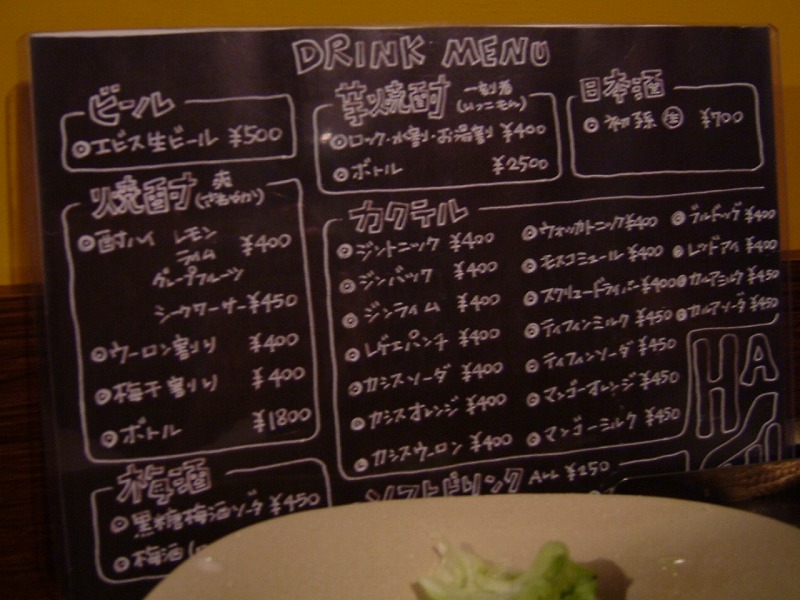 DRINK MENU
ビール
◎エビス生ビール ¥500
芋焼酎 一刻者
(いっこもん)
◎ロック・水割・お湯割 ¥400
◎ボトル ¥2500
日本酒
◎初孫 ¥700
焼酎 爽
(さわやか)
◎酎ハイ レモン ¥400
ライム
グレープフルーツ
シークワーサー ¥450
◎ウーロン割り ¥400
◎梅干割り ¥400
◎ボトル ¥1800
カクテル
◎ジントニック ¥400
◎ジンバック ¥400
◎ジンライム ¥400
◎レゲエパンチ ¥400
◎カシスソーダ ¥400
◎カシスオレンジ ¥400
◎カシスウーロン ¥400
◎ウォッカトニック ¥400
◎モスコミュール ¥400
◎スクリュードライバー ¥400
◎ティフィンミルク ¥450
◎ティフィンソーダ ¥450
◎マンゴーオレンジ ¥450
◎マンゴーミルク ¥450
◎ブルドッグ ¥400
◎レッドアイ ¥400
◎カルアミルク ¥450
◎カルアソーダ ¥450
HA
梅酒
◎黒糖梅酒ソーダ ¥450
◎梅酒
ソフトドリンク ALL ¥250